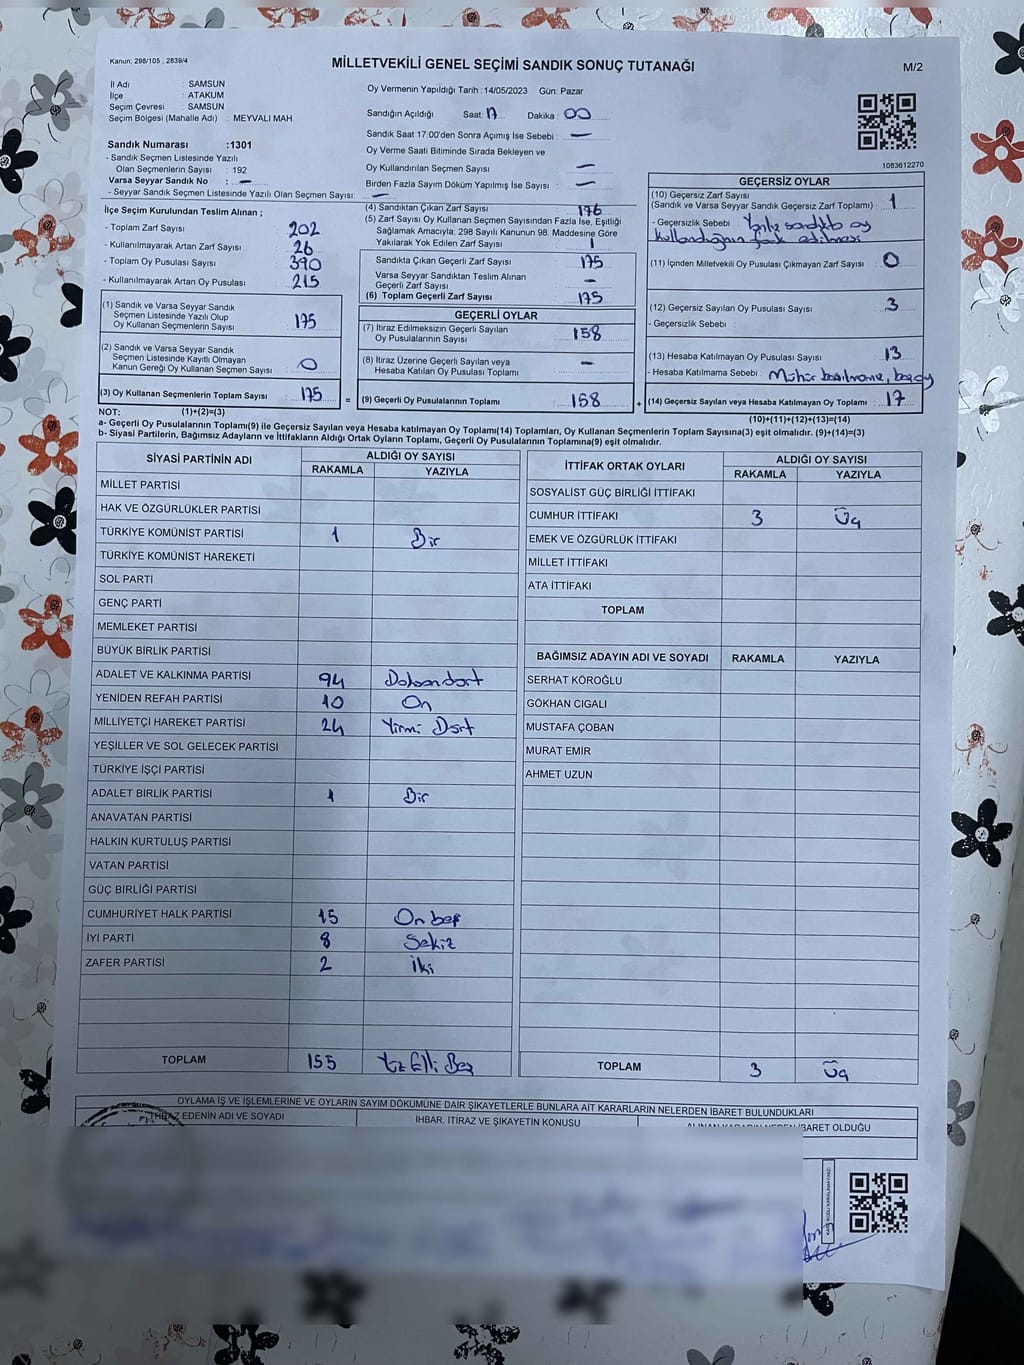 Kanun: 298/105 , 2839/4
MİLLETVEKİLİ GENEL SEÇİMİ SANDIK SONUÇ TUTANAĞI
M/2
İl Adı : SAMSUN
İlçe : ATAKUM
Seçim Çevresi : SAMSUN
Seçim Bölgesi (Mahalle Adı) : MEYVALI MAH
Oy Vermenin Yapıldığı Tarih :14/05/2023 Gün: Pazar
Sandığın Açıldığı Saat: 17 Dakika : 00
Sandık Saat 17:00'den Sonra Açımış İse Sebebi : —
Oy Verme Saati Bitiminde Sırada Bekleyen ve
Oy Kullandırılan Seçmen Sayısı : —
Birden Fazla Sayım Döküm Yapılmış İse Sayısı : —
1083612270
Sandık Numarası :1301
- Sandık Seçmen Listesinde Yazılı
Olan Seçmenlerin Sayısı : 192
Varsa Seyyar Sandık No : —
- Seyyar Sandık Seçmen Listesinde Yazılı Olan Seçmen Sayısı: —
İlçe Seçim Kurulundan Teslim Alınan ;
- Toplam Zarf Sayısı : 202
- Kullanılmayarak Artan Zarf Sayısı : 26
- Toplam Oy Pusulası Sayısı : 390
- Kullanılmayarak Artan Oy Pusulası : 215
(1) Sandık ve Varsa Seyyar Sandık
Seçmen Listesinde Yazılı Olup
Oy Kullanan Seçmenlerin Sayısı : 175
(2) Sandık ve Varsa Seyyar Sandık
Seçmen Listesinde Kayıtlı Olmayan
Kanun Gereği Oy Kullanan Seçmen Sayısı : 0
(3) Oy Kullanan Seçmenlerin Toplam Sayısı : 175
=
(4) Sandıktan Çıkan Zarf Sayısı : 176
(5) Zarf Sayısı Oy Kullanan Seçmen Sayısından Fazla İse, Eşitliği
Sağlamak Amacıyla; 298 Sayılı Kanunun 98. Maddesine Göre
Yakılarak Yok Edilen Zarf Sayısı : 1
Sandıkta Çıkan Geçerli Zarf Sayısı : 175
Varsa Seyyar Sandıktan Teslim Alınan
Geçerli Zarf Sayısı : —
(6) Toplam Geçerli Zarf Sayısı : 175
GEÇERLİ OYLAR
(7) İtiraz Edilmeksizin Geçerli Sayılan
Oy Pusulalarının Sayısı : 158
(8) İtiraz Üzerine Geçerli Sayılan veya
Hesaba Katılan Oy Pusulası Toplamı : —
(9) Geçerli Oy Pusulalarının Toplamı : 158
+
GEÇERSİZ OYLAR
(10) Geçersiz Zarf Sayısı
(Sandık ve Varsa Seyyar Sandık Geçersiz Zarf Toplamı) : 1
- Geçersizlik Sebebi : Yanlış sandıkta oy
kullandığının fark edilmesi
(11) İçinden Milletvekili Oy Pusulası Çıkmayan Zarf Sayısı : 0
(12) Geçersiz Sayılan Oy Pusulası Sayısı : 3
- Geçersizlik Sebebi :
(13) Hesaba Katılmayan Oy Pusulası Sayısı : 13
- Hesaba Katılmama Sebebi : Mühür basılmama, boş oy
(14) Geçersiz Sayılan veya Hesaba Katılmayan Oy Toplamı : 17
NOT: (1)+(2)=(3)
(10)+(11)+(12)+(13)=(14)
a- Geçerli Oy Pusulalarının Toplamı(9) ile Geçersiz Sayılan veya Hesaba katılmayan Oy Toplamı(14) Toplamları, Oy Kullanan Seçmenlerin Toplam Sayısına(3) eşit olmalıdır. (9)+(14)=(3)
b- Siyasi Partilerin, Bağımsız Adayların ve İttifakların Aldığı Ortak Oyların Toplamı, Geçerli Oy Pusulalarının Toplamına(9) eşit olmalıdır.
SİYASİ PARTİNİN ADI ALDIĞI OY SAYISI
RAKAMLA YAZIYLA
MİLLET PARTİSİ
HAK VE ÖZGÜRLÜKLER PARTİSİ
TÜRKİYE KOMÜNİST PARTİSİ 1 Bir
TÜRKİYE KOMÜNİST HAREKETİ
SOL PARTİ
GENÇ PARTİ
MEMLEKET PARTİSİ
BÜYÜK BİRLİK PARTİSİ
ADALET VE KALKINMA PARTİSİ 94 Doksandört
YENİDEN REFAH PARTİSİ 10 On
MİLLİYETÇİ HAREKET PARTİSİ 24 Yirmi Dört
YEŞİLLER VE SOL GELECEK PARTİSİ
TÜRKİYE İŞÇİ PARTİSİ
ADALET BİRLİK PARTİSİ 1 Bir
ANAVATAN PARTİSİ
HALKIN KURTULUŞ PARTİSİ
VATAN PARTİSİ
GÜÇ BİRLİĞİ PARTİSİ
CUMHURİYET HALK PARTİSİ 15 On beş
İYİ PARTİ 8 Sekiz
ZAFER PARTİSİ 2 İki
TOPLAM 155 Yüz Elli Beş
İTTİFAK ORTAK OYLARI ALDIĞI OY SAYISI
RAKAMLA YAZIYLA
SOSYALİST GÜÇ BİRLİĞİ İTTİFAKI
CUMHUR İTTİFAKI 3 Üç
EMEK VE ÖZGÜRLÜK İTTİFAKI
MİLLET İTTİFAKI
ATA İTTİFAKI
TOPLAM
BAĞIMSIZ ADAYIN ADI VE SOYADI RAKAMLA YAZIYLA
SERHAT KÖROĞLU
GÖKHAN CIGALI
MUSTAFA ÇOBAN
MURAT EMİR
AHMET UZUN
TOPLAM 3 Üç
OYLAMA İŞ VE İŞLEMLERİNE VE OYLARIN SAYIM DÖKÜMÜNE DAİR ŞİKAYETLERLE BUNLARA AİT KARARLARIN NELERDEN İBARET BULUNDUKLARI
İTİRAZ EDENİN ADI VE SOYADI
İHBAR, İTİRAZ VE ŞİKAYETİN KONUSU
ALINAN KARARIN NEDEN İBARET OLDUĞU